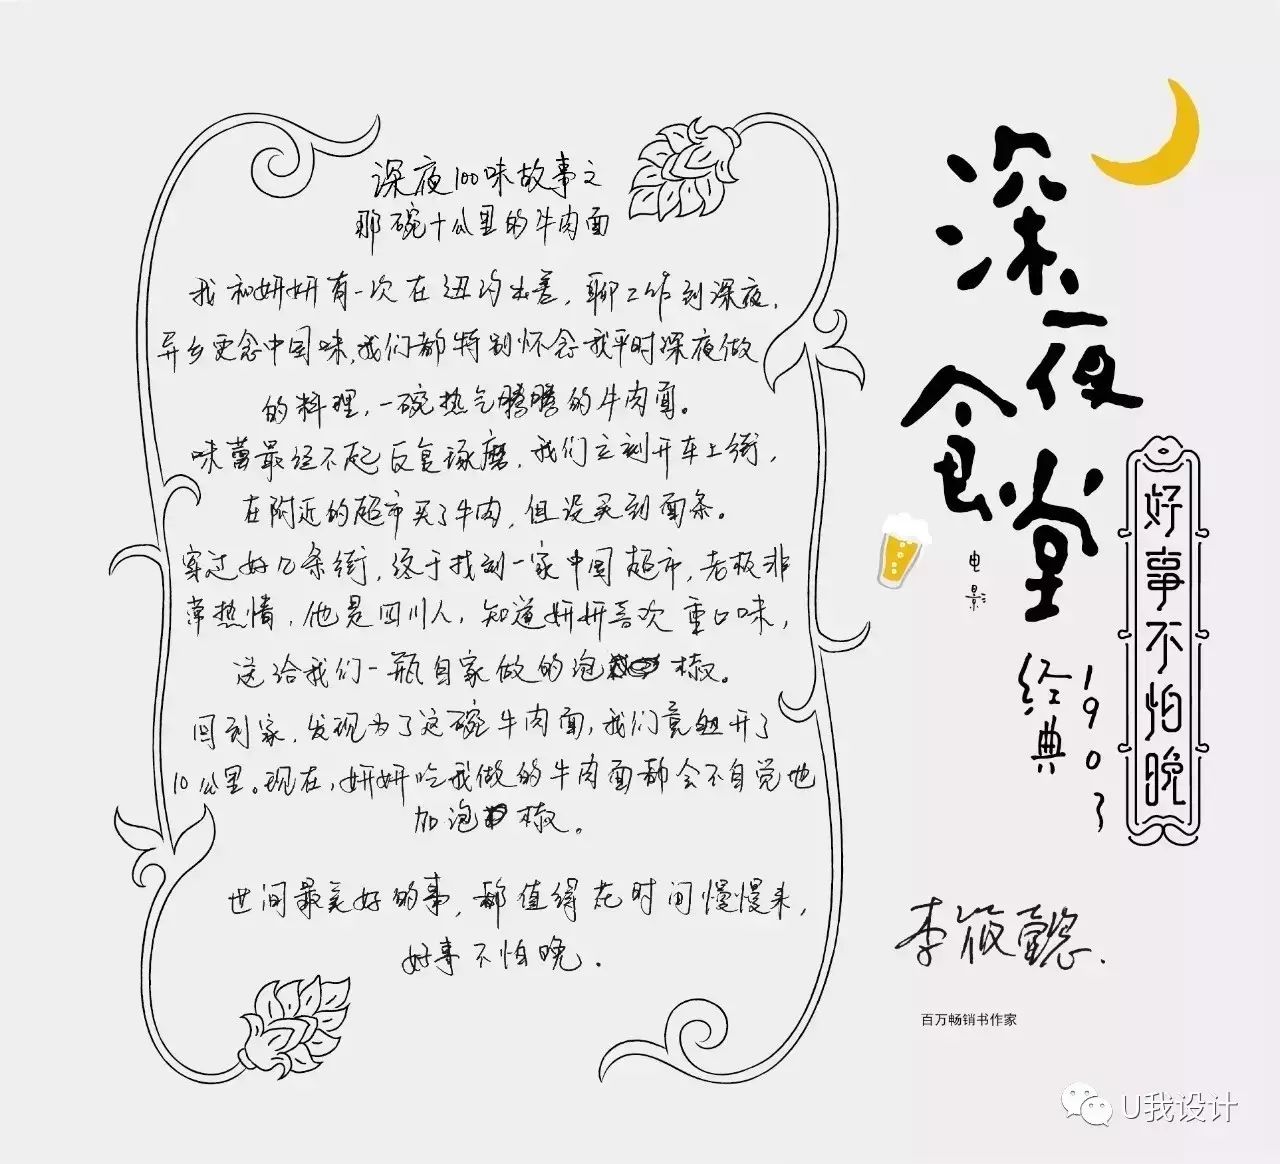 深夜100味故事之
那碗十公里的牛肉面
我和妍妍有一次在纽约出差，聊工作到深夜，
异乡更念中国味，我们都特别怀念我平时深夜做
的料理，一碗热气腾腾的牛肉面。
味蕾最经不起反复琢磨，我们立刻开车上街，
在附近的超市买了牛肉，但没买到面条。
穿过好几条街，终于找到一家中国超市，老板非
常热情，他是四川人，知道妍妍喜欢重口味，
送给我们一瓶自家做的泡椒。
回到家，发现为了这碗牛肉面，我们竟然开了
10公里。现在，妍妍吃我做的牛肉面都会不自觉地
加泡椒。
世间最美好的事，都值得花时间慢慢来，
好事不怕晚．
深夜
食堂
电影
经典
1903
好事不怕晚
李筱懿．
百万畅销书作家
U我设计